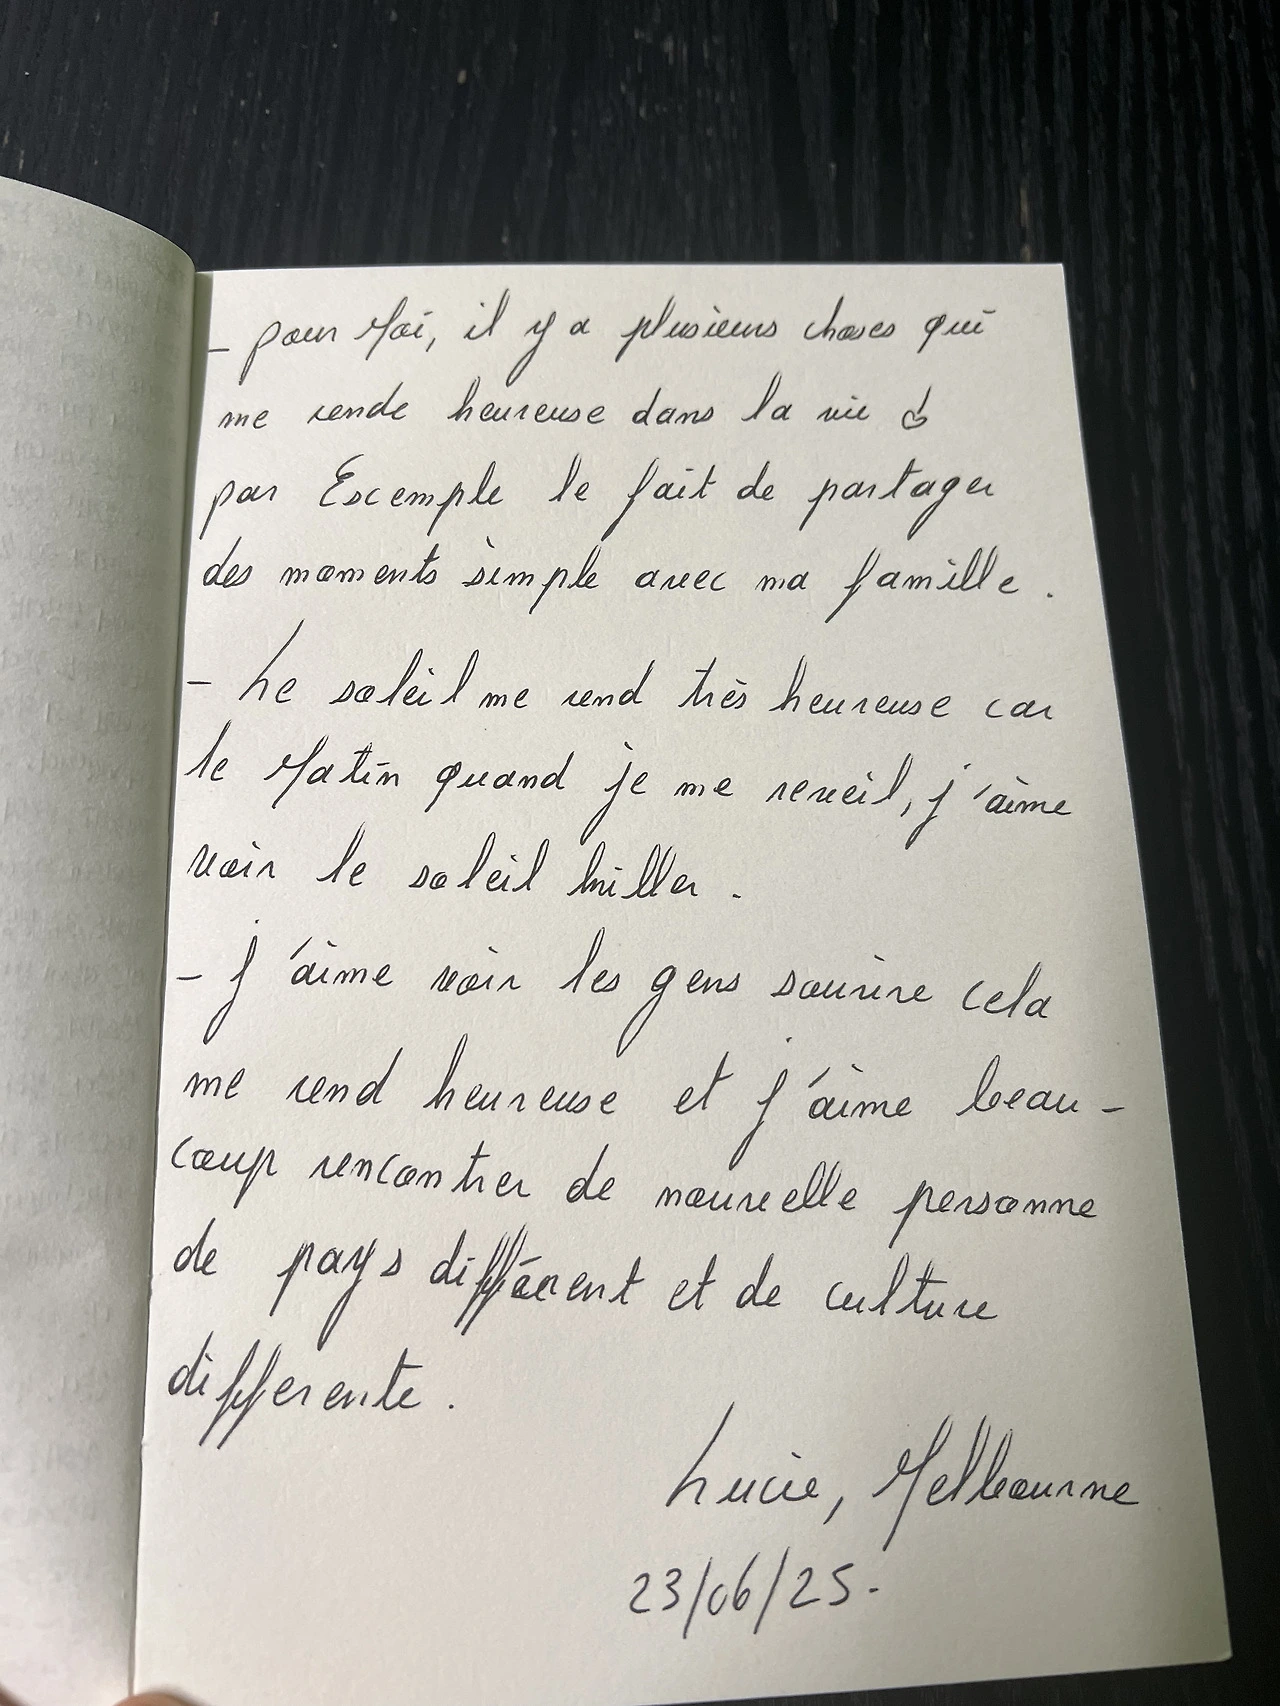 - pour Moi, il y a plusieurs choses qui
me rende heureuse dans la vie
par Escemple le fait de partager
des moments simple avec ma famille.
- Le soleil me rend très heureuse car
le Matin quand je me reveil, j'aime
voir le soleil briller.
- J'aime voir les gens sourire cela
me rend heureuse et j'aime beau-
coup rencontrer de nouvelle personne
de pays différent et de culture
differente.
Lucie, Melbourne
23/06/25.